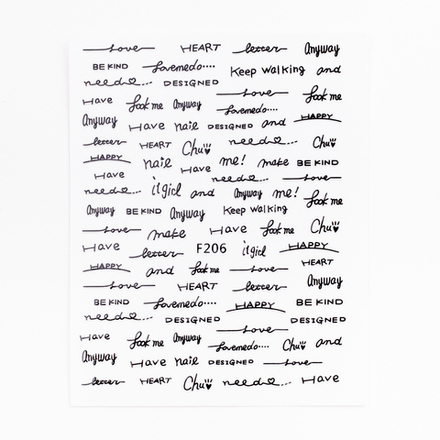 Love HEART letter Anyway
BE KIND Lovemedo.... Keep Walking and
need... DESIGNED Love look me
Have look me Anyway Lovemedo.... HAPPY
Anyway Have nail DESIGNED and
letter HEART Chu need... Chu
HAPPY nail Have me! make BE KIND
Have need... Love
need... it girl and Anyway me! look me
Anyway BE KIND Anyway Keep Walking
Love make Have look me Chu
Have letter F206 it girl HAPPY
HAPPY and look me Love HEART
Love HEART letter Anyway
BE KIND Lovemedo.... HAPPY BE KIND
need... DESIGNED Love DESIGNED
Have look me Anyway Lovemedo.... Chu and
Anyway Have nail DESIGNED Love
letter HEART Chu need... Have